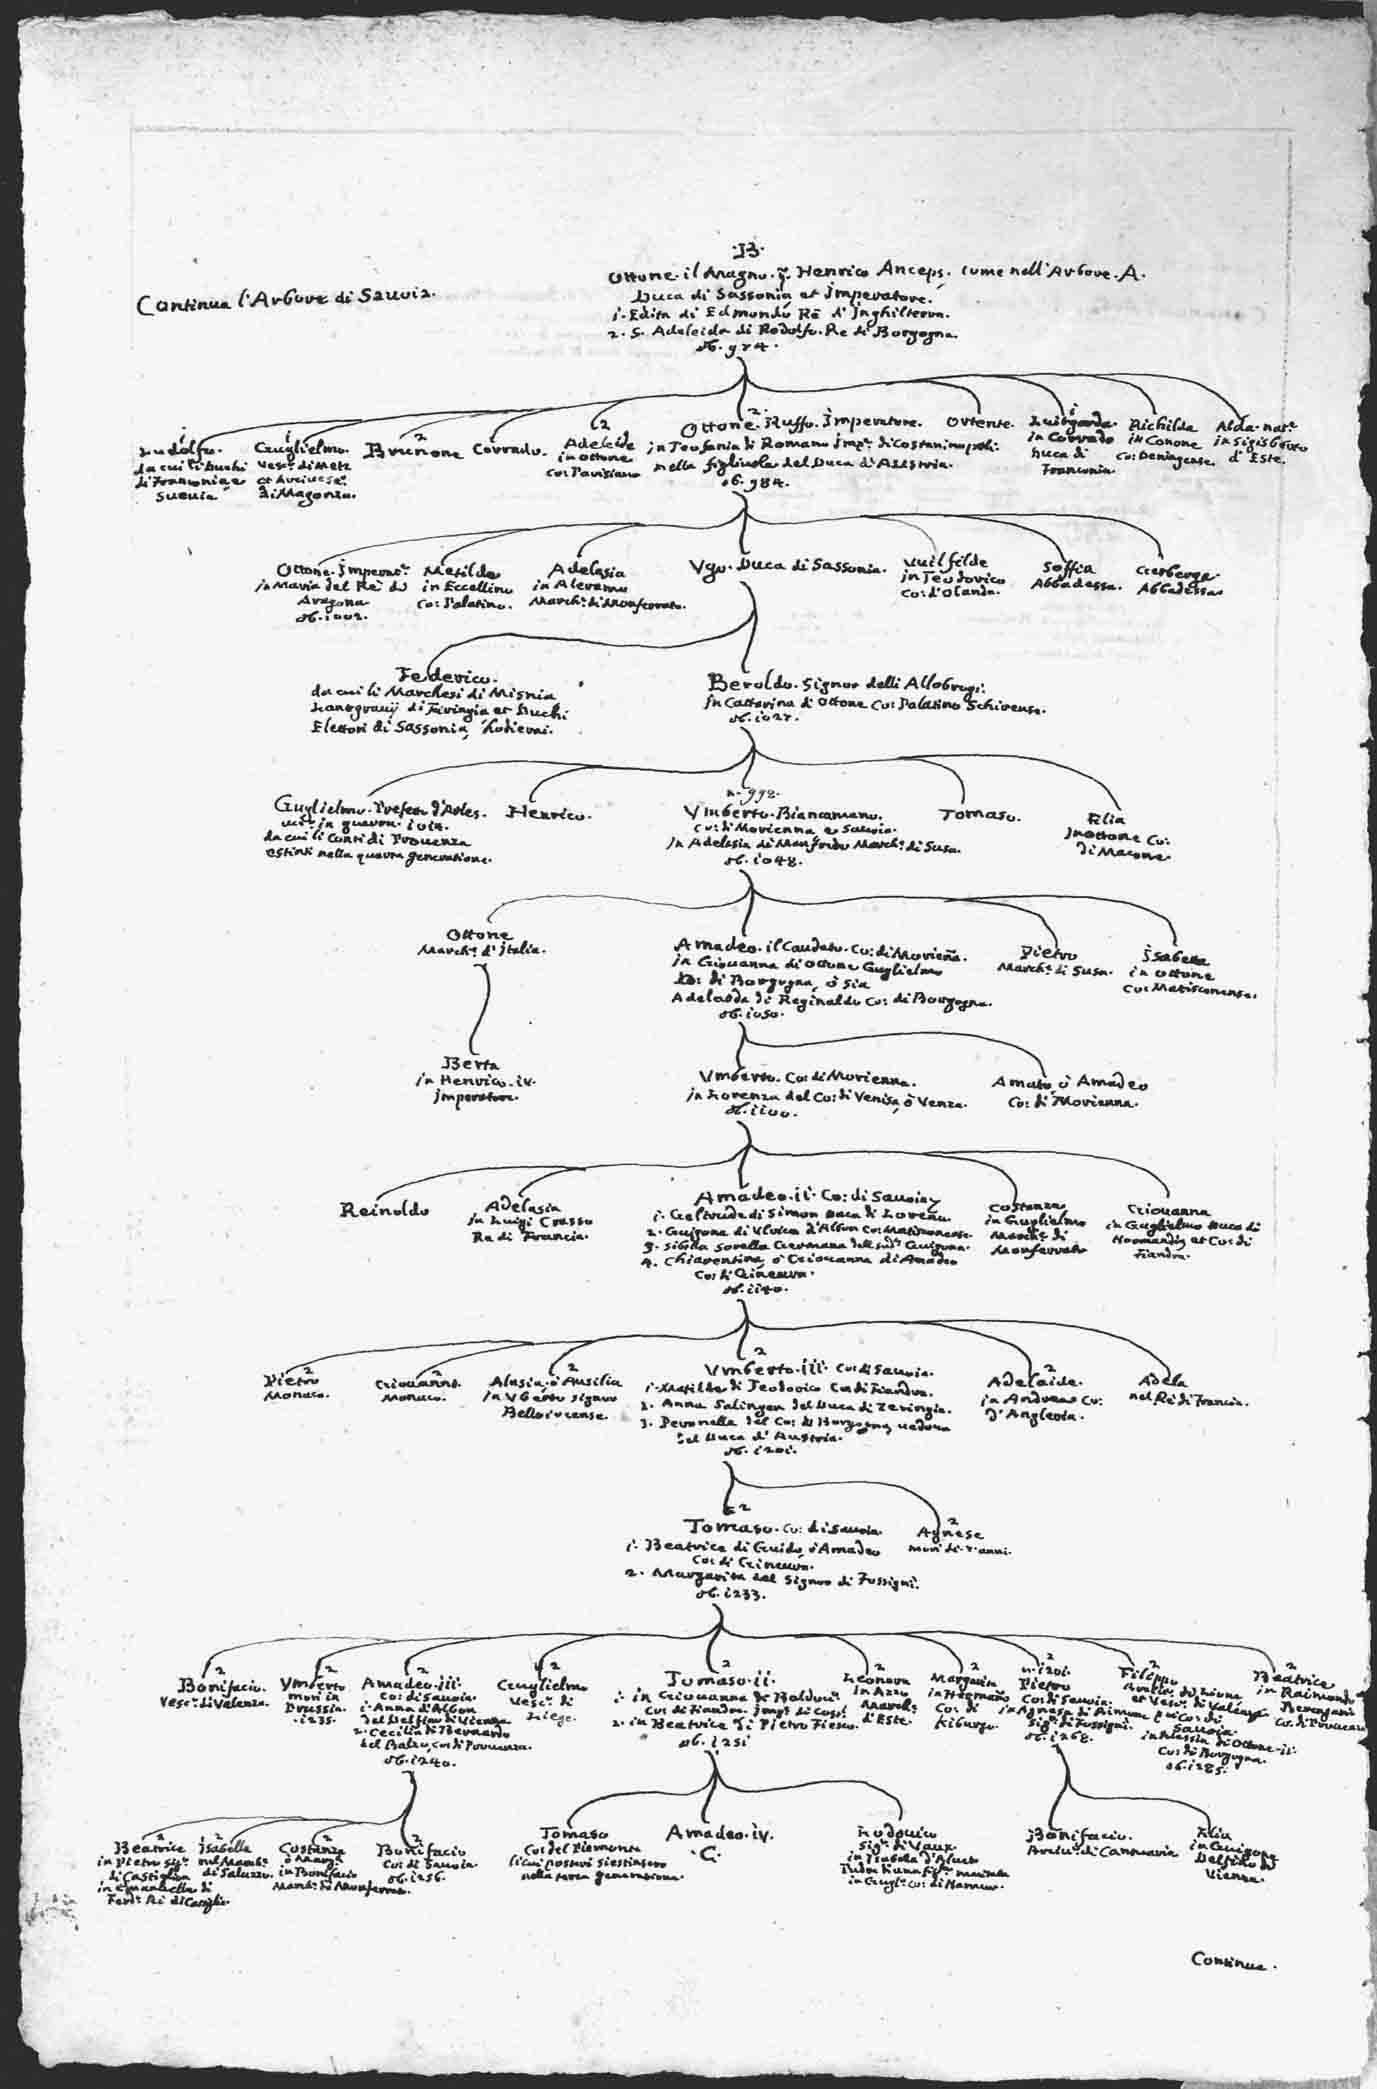 .B.
Continua l'Arbore di Sauoia.
Ottone il Magno. q. Henrico Anceps. come nell'Arbore. A.
Duca di Sassonia et Imperatore.
i. Edita di Edmondo Rè d'Inghilterra.
2. S. Adeleida di Rodolfo Re di Borgogna.
ob. 974.
i
Ludolfo.
da cui li Duchi
di Franconia e
Sueuia
i
Guglielmo.
Vesc.º di Metz
et Arciuesc.º
di Magonza.
2
Brunone
Corrado.
2
Adeleide
in Ottone
co: Parisiano
2
Ottone. Ruffo. Imperatore.
in Teofania di Romano Imp.r di Costantinopoli.
nella figliuola del Duca d'Austria.
ob. 984.
Ortente.
i
Luitgarda
in Corrado
Duca di
Franconia.
Richilda
in Conone
Co: Deningense.
Alda. nat.e
in Sigisberto
d'Este.
Ottone. Imperat.r
in Maria del Re di
Aragona
ob. 1002.
Matilde
in Eccellino
Co: Palatino.
Adelasia
in Aleramo
March.e di Monferrato.
Vgo. Duca di Sassonia.
Vuilfilde
in Teodorico
Co: d'Olanda.
Soffia
Abbadessa.
Gerberga.
Abbadessa.
Federico.
da cui li Marchesi di Misnia
Lantgrauij di Turingia et Duchi
Elettori di Sassonia hodierni.
Beroldo. Signor delli Allobrogi.
in Catterina di Ottone Co: Palatino Schirense.
ob. 1027.
Guglielmo. Prefetto d'Arles.
in guerra. 1014.
da cui li Conti di Prouenza
estinti nella quarta generatione.
Henrico.
n. 992.
Vmberto. Biancamano.
Co: di Morienna e Sauoia.
in Adelasia di Manfredo March.e di Susa.
ob. 1048.
Tomaso.
Elia
in Ottone Co:
di Macone.
Ottone
March.e d'Italia.
Amadeo. il Caudato. Co: di Morieña.
in Giouanna di Ottone Guglielmo
Co: di Borgogna, ò sia
Adelaoda di Reginaldo Co: di Borgogna.
ob. 1050.
Pietro
March.e di Susa.
Isabella
in Ottone
Co: Matisconense.
Berta
in Henrico. iv.
Imperatore.
Vmberto. Co: di Morienna.
in Lorenza del Co: di Venisa, ò Venza.
ob. 1100.
Amato, ò Amadeo
Co: di Morienna.
Reinoldo
Adelasia
in Luigi Crasso
Re di Francia.
Amadeo. ii. Co: di Sauoia
i. Geltrude di Simon Duca di Lorena.
2. Guigona di Vlrico d'Albon Co: Matisconense.
3. Sibilla sorella Germana dell sud.a Guigona.
4. Chiarentina, ò Giouanna di Amadeo
Co: di Gineura.
ob. 1140.
Costanza
in Guglielmo
March.e di
Monferrato
Giouanna
in Guglielmo Duca di
Normandia et Co: di
Fiandra.
2
Pietro
Monaco.
2
Giouanni.
Monaco.
2
Alasia, ò Ausilia
in Vberto Signor
Belloiocense.
2
Vmberto. iii. Co: di Sauoia.
i. Matilde di Teodorico Co: di Fiandra.
2. Anna Salingen del Duca di Zeringia.
3. Peronella del Co: di Borgogna, uedoua
del Duca d'Austria.
ob. 1201.
2
Adelaide.
in Andrea Co:
d'Angleria.
Adela
nel Rè di Francia.
2
Tomaso. Co: di Sauoia.
i. Beatrice di Guido, ò Amadeo
Co: di Gineura.
2. Margarita del Signor di Fossignì.
ob. 1233.
2
Agnese
morì di 7 anni.
2
Bonifacio.
Vesc.º di Valenza.
2
Vmberto
morì in
Prussia.
1235.
2
Amadeo. iii.
Co: di Sauoia.
i. Anna d'Albon
del Delfino di Vienna
2. Cecilia di Bernardo
del Balzo, Co: di Prouenza.
ob. 1240.
2
Guglielmo
Vesc.º di
Liege.
2
Tomaso. ii.
i. in Giouanna de Balduc.º
Co: di Fiandra. Imp.r di Cost.
2. in Beatrice di Pietro Fiesco.
ob. 1251
2
Leonora
in Azzo
March.e
d'Este.
2
Margarita
in Hermano
Co: di
Kiburgo.
n. 1201.
Pietro
Co: di Sauoia.
in Agnese di Aimone
Sig.r di Fossignì.
ob. 1268.
2
Filippo
di Lione
et Vesc.º di Valenza
poi Co: di
Sauoia.
in Alassia di Ottone. ii.
Co: di Borgogna.
ob. 1285.
2
Beatrice
in Raimondo
Berengario
Co: di Prouenza
2
Beatrice
in Pietro
di Castiglia
in Emanuelle di
Ferd.º Rè di Castiglia.
2
Isabella
nel March.e
di Saluzzo.
2
Costanza
ò Marg.a
in Bonifacio
March.e di Monferrato.
2
Bonifacio
Co: di Sauoia.
ob. 1256.
Tomaso
Co: del Piemonte
li cui posteri si estinsero
nella terza generatione.
Amadeo. iv.
.C.
Lodouico
Sig.r di Vaux.
in Isabella d'
in Gugl.º Co: di Namur.
Bonifacio.
Arciu.º di Cantuaria.
Elia
in Guigone
Delfino di
Vienna.
Continua.